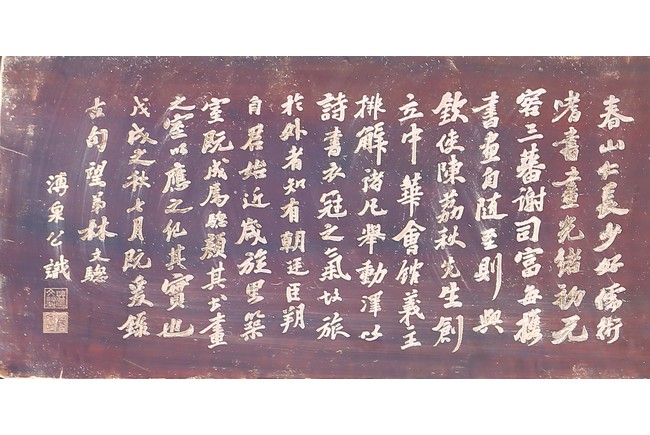 春山仁長少好儒術
嗜書畫光緒初元
客三藩謝司富每攜
書畫自随至則與
欽使陳荔秋先生創
立中華會館義主
排解諸凡舉動澤以
詩書衣冠之氣故旅
於外者知有朝廷臣翔
自君始近歲旋里築
室既成屬驄顏其書畫
之室以應之紀其實也
戊戌之秋七月既爰錄
弟林文驄
泉公識